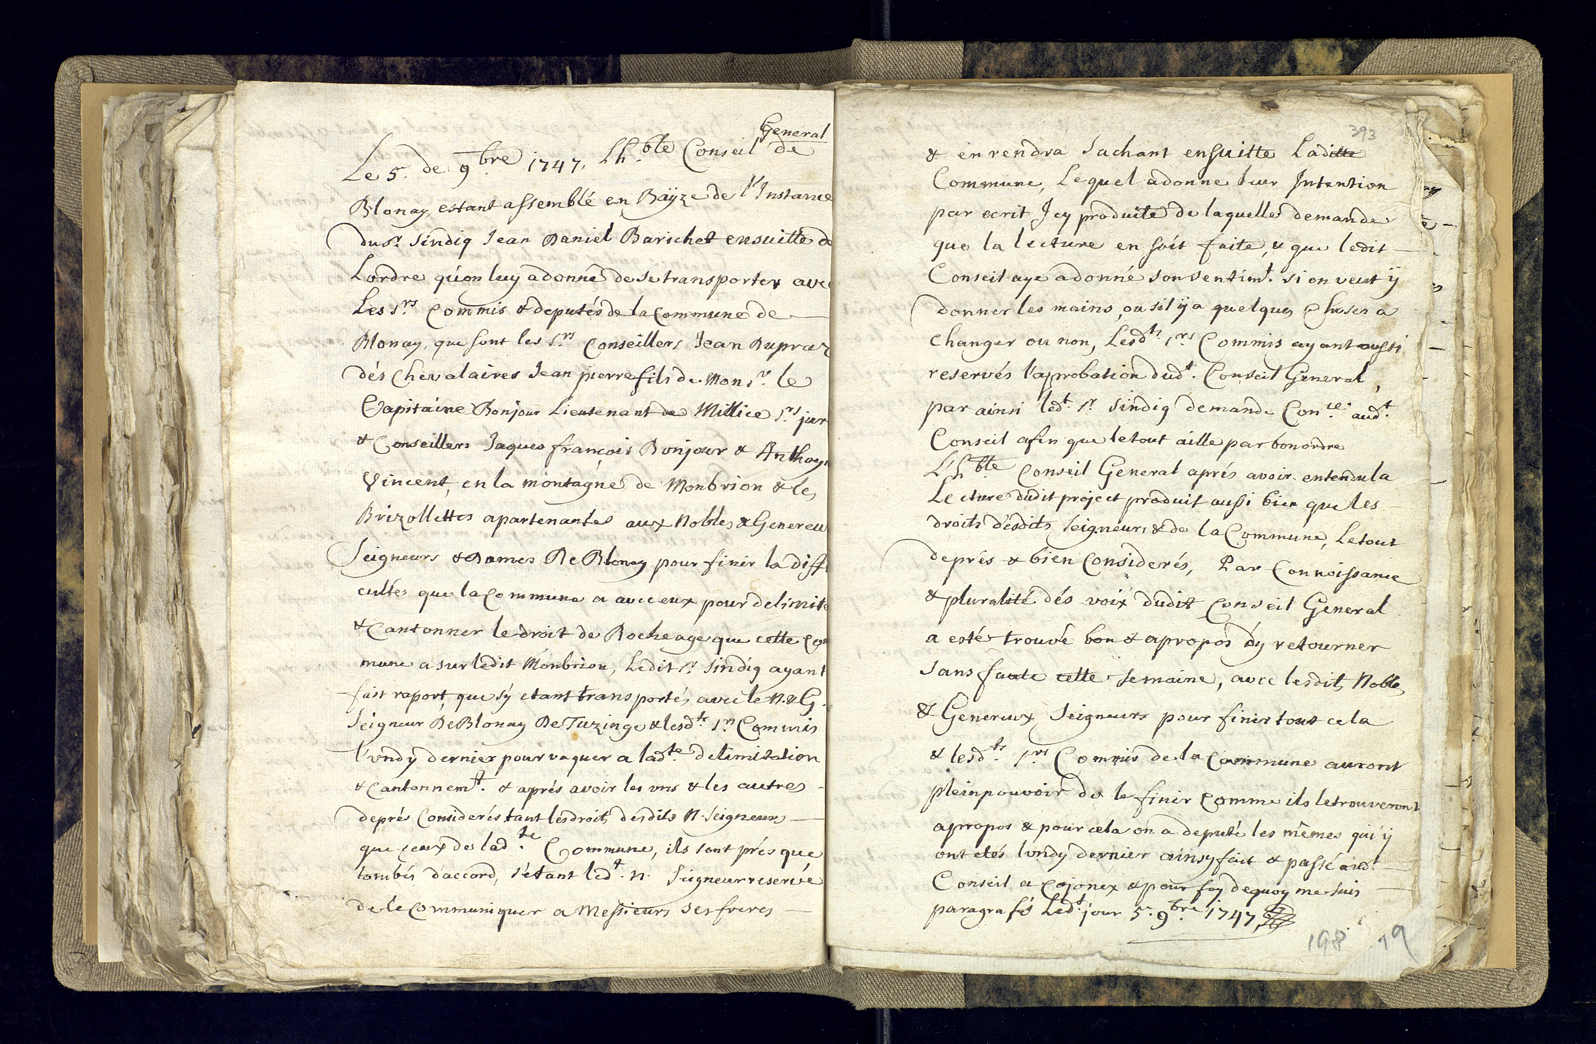 General
Le 5.e de 9.bre 1747, Lh.ble Conseil de
Blonay estant assemblé en Baÿze de l'Instance
du Sr. Sindiq Jean Daniel Barichet ensuitte de
Lordre qu'on luy a donné de se transporter avec
Les S.rs Commis & deputés de la Commune de
Blonay, que sont les S.rs Conseillers Jean Dupraz
dés Chevalaires Jean pierre fils de Mons.r le
Capitaine Bonjour Lieutenant de Millice S.rs jur
& Conseillers Jaques françois Bonjour & Anthoy
Vincent, en la montagne de Monbrion & les
Brizollettes apartenantes aux Nobles & Genereu
Seigneurs & Dames De Blonay pour finir la diffi
cultés que la Commune a avec eux pour delimite
& Cantonner le droit de Bocheage que cette Co
mune a sur ledit Monbrion, Ledit Sr. Sindiq ayant
fait raport, que s'y etant transportés avec le N. & G.
Seigneur De Blonay De Tuzinge & lesd.ts S.rs Commis
lundy dernier pour vaquer a lad.te delimitation
& Cantonnem.t & aprés avoir les uns & les autres
deprés Considerés tant les droits desdits N. Seigneurs
que ceux de lad.te Commune, ils sont prés que
tombés d'accord, s'étant led.t N. Seigneur reservé
de le Communiquer a Messieurs ses freres
393
& en rendra sachant ensuitte Laditte
Commune, Lequel a donne leur Intention
par ecrit Icy produite de laquelle demande
que la lecture en soit faite, & que ledit
Conseil aye a donné son sentim.t si on veut ÿ
donner les mains, ou s'il ÿ a quelques choses a
changer ou non, Lesd.ts S.rs Commis ayant aussi
reservés l'aprobation dud.t Conseil General,
par ainsi led.t Sr. Sindiq demande Con.ce aud.t
Conseil afin que le tout aille par bon ordre
L'h.ble Conseil General aprés avoir entendu la
Lecture dudit project produit aussi bien que les
droits desdits Seigneurs & de la Commune, Le tout
deprés & bien Considerés, Par Connoissance
& pluralité dés voix dudit Conseil General
a esté trouvé bon & apropos d'y retourner
sans faute cette semaine, avec lesdits Nobles
& Genereux Seigneurs pour finir tout cela
& lesd.ts S.rs Commis de la Commune auront
plein pouvoir de le finir comme ils le trouveront
apropos & pour cela on a deputé les mêmes qui ÿ
ont etés lundy dernier ainsy fait & passé aud.t
Conseil a Cojonex & pour foy dequoy me suis
paragrafés Led.t jour 5.e 9.bre 1747
198 19